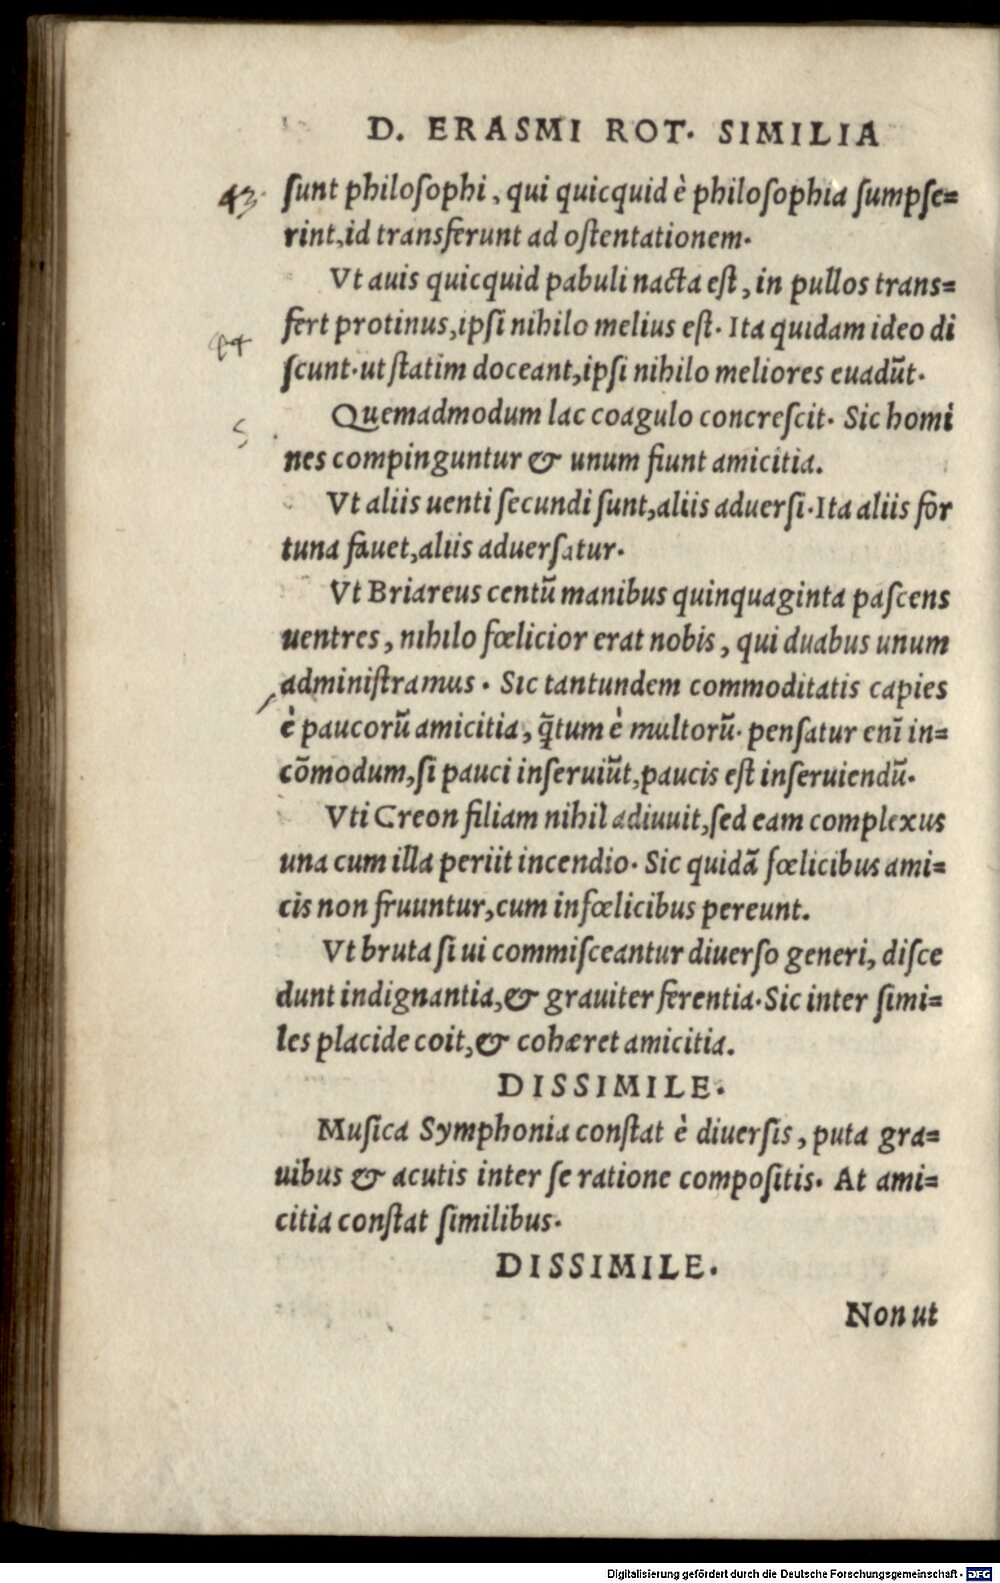 D. ERASMI ROT. SIMILIA
43. ſunt philoſophi, qui quicquid è philoſophia ſumpſe=
rint, id transferunt ad oſtentationem.
Vt auis quicquid pabuli nacta eſt, in pullos trans=
fert protinus, ipſi nihilo melius eſt. Ita quidam ideo di
44
ſcunt. ut ſtatim doceant, ipſi nihilo meliores euadūt.
Quemadmodum lac coagulo concreſcit. Sic homi
5
nes compinguntur & unum fiunt amicitia.
Vt aliis uenti ſecundi ſunt, aliis aduerſi. Ita aliis for
tuna fauet, aliis aduerſatur.
Vt Briareus centū manibus quinquaginta paſcens
uentres, nihilo fœlicior erat nobis, qui duabus unum
adminiſtramus. Sic tantundem commoditatis capies
è paucorū amicitia, q̃tum è multorū. penſatur enī in=
cōmodum, ſi pauci inſeruiūt, paucis eſt inſeruiendū.
Vti Creon filiam nihil adiuuit, ſed eam complexus
una cum illa periit incendio. Sic quidã fœlicibus ami=
cis non fruuntur, cum infœlicibus pereunt.
Vt bruta ſi ui commiſceantur diuerſo generi, diſce
dunt indignantia, & grauiter ferentia. Sic inter ſimi=
les placide coit, & cohæret amicitia.
DISSIMILE.
Muſica Symphonia conſtat è diuerſis, puta gra=
uibus & acutis inter ſe ratione compoſitis. At ami=
citia conſtat ſimilibus.
DISSIMILE.
Non ut
Digitalisierung gefördert durch die Deutsche Forschungsgemeinschaft - DFG